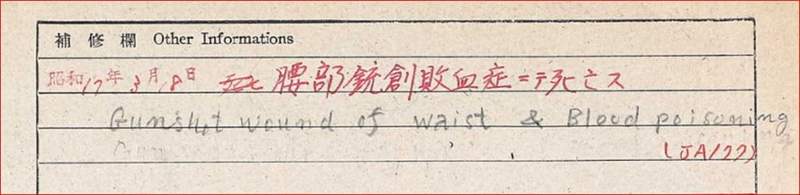 補修欄 Other Informations
昭和17年3月18日 腰部銃創敗血症ニテ死亡ス
Gunshot wound of waist & Blood poisoning
(JA/77)